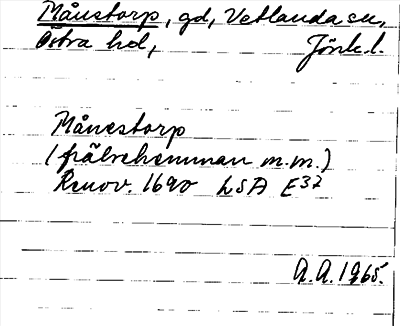 Månstorp, gd, Vetlanda sn,
Östra hd, Jönk.l.
Månestorp
(frälsehemman m.m.)
Renov. 1690 LSA E37
A.A. 1965.